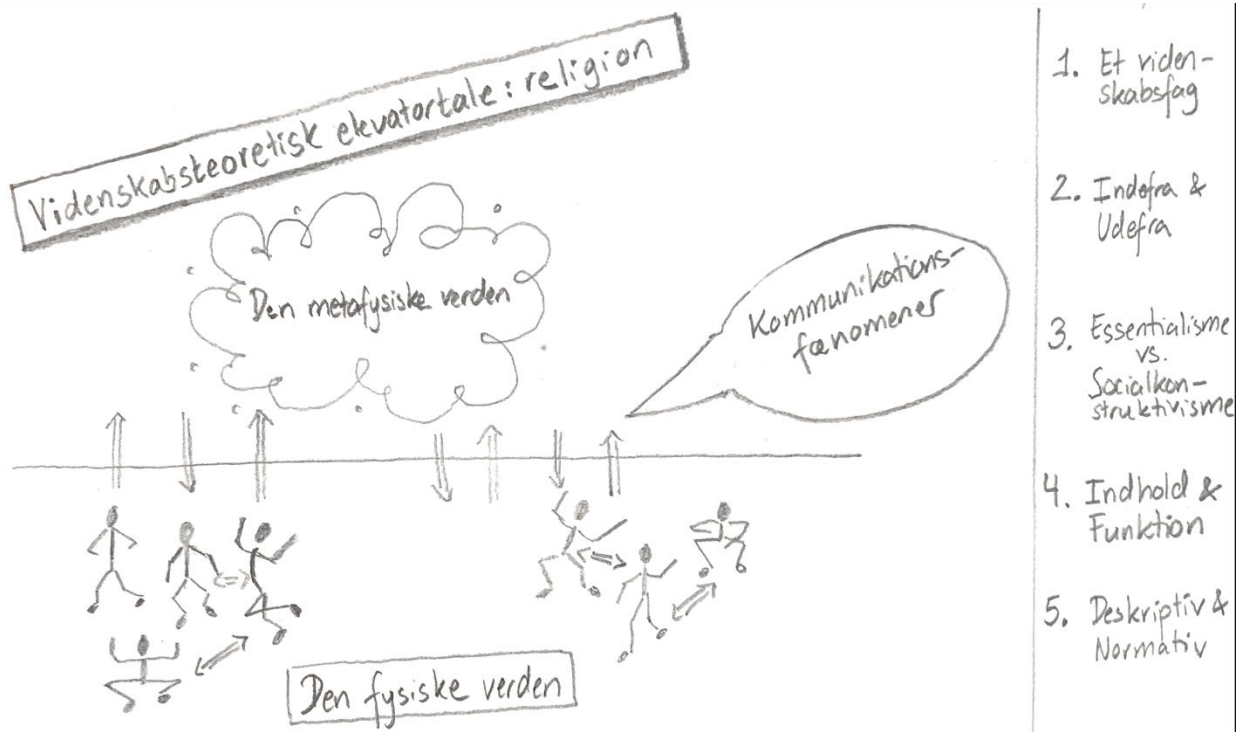 Videnskabsteoretisk elevatortale: religion
Den metafysiske verden
Kommunikations-
fænomener
Den fysiske verden
1. Et viden-
skabsfag
2. Indefra &
Udefra
3. Essentialisme
vs.
Socialkon-
struktivisme
4. Indhold &
Funktion
5. Deskriptiv &
Normativ